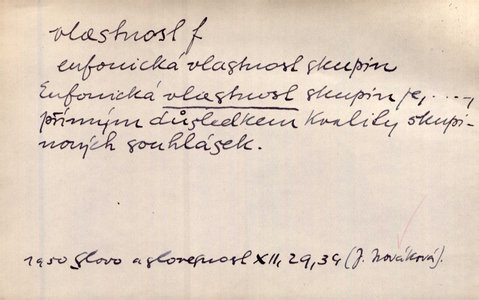 vlastnost f
eufonická vlastnost skupin
Eufonická vlastnost skupin je, ...,
přímým důsledkem kvality skupi-
nových souhlásek.
1950 Slovo a slovesnost XII, 29, 39 (J. Nováková).